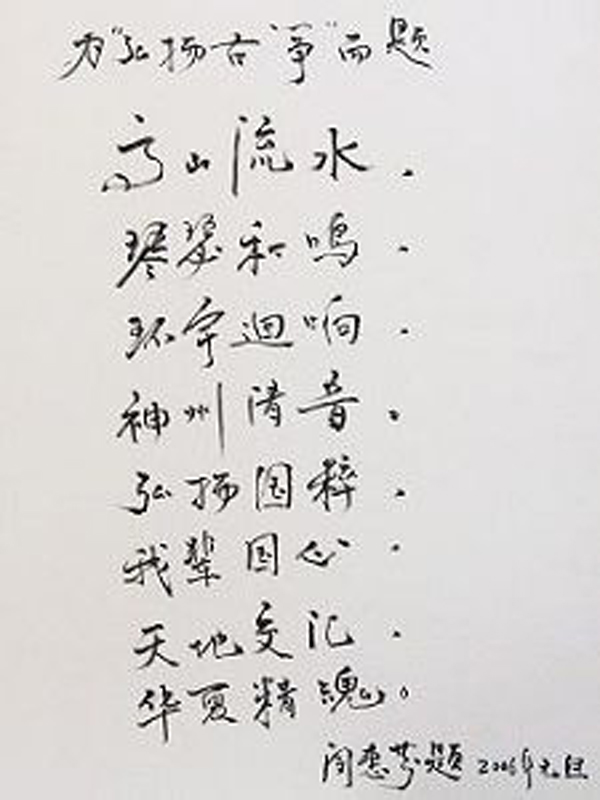 为"弘扬古筝"而题
高山流水.
琴瑟和鸣.
环宇迴响.
神州清音.
弘扬国粹.
我辈同心.
天地交汇.
华夏精魂。
闵惠芬题 2006年元旦